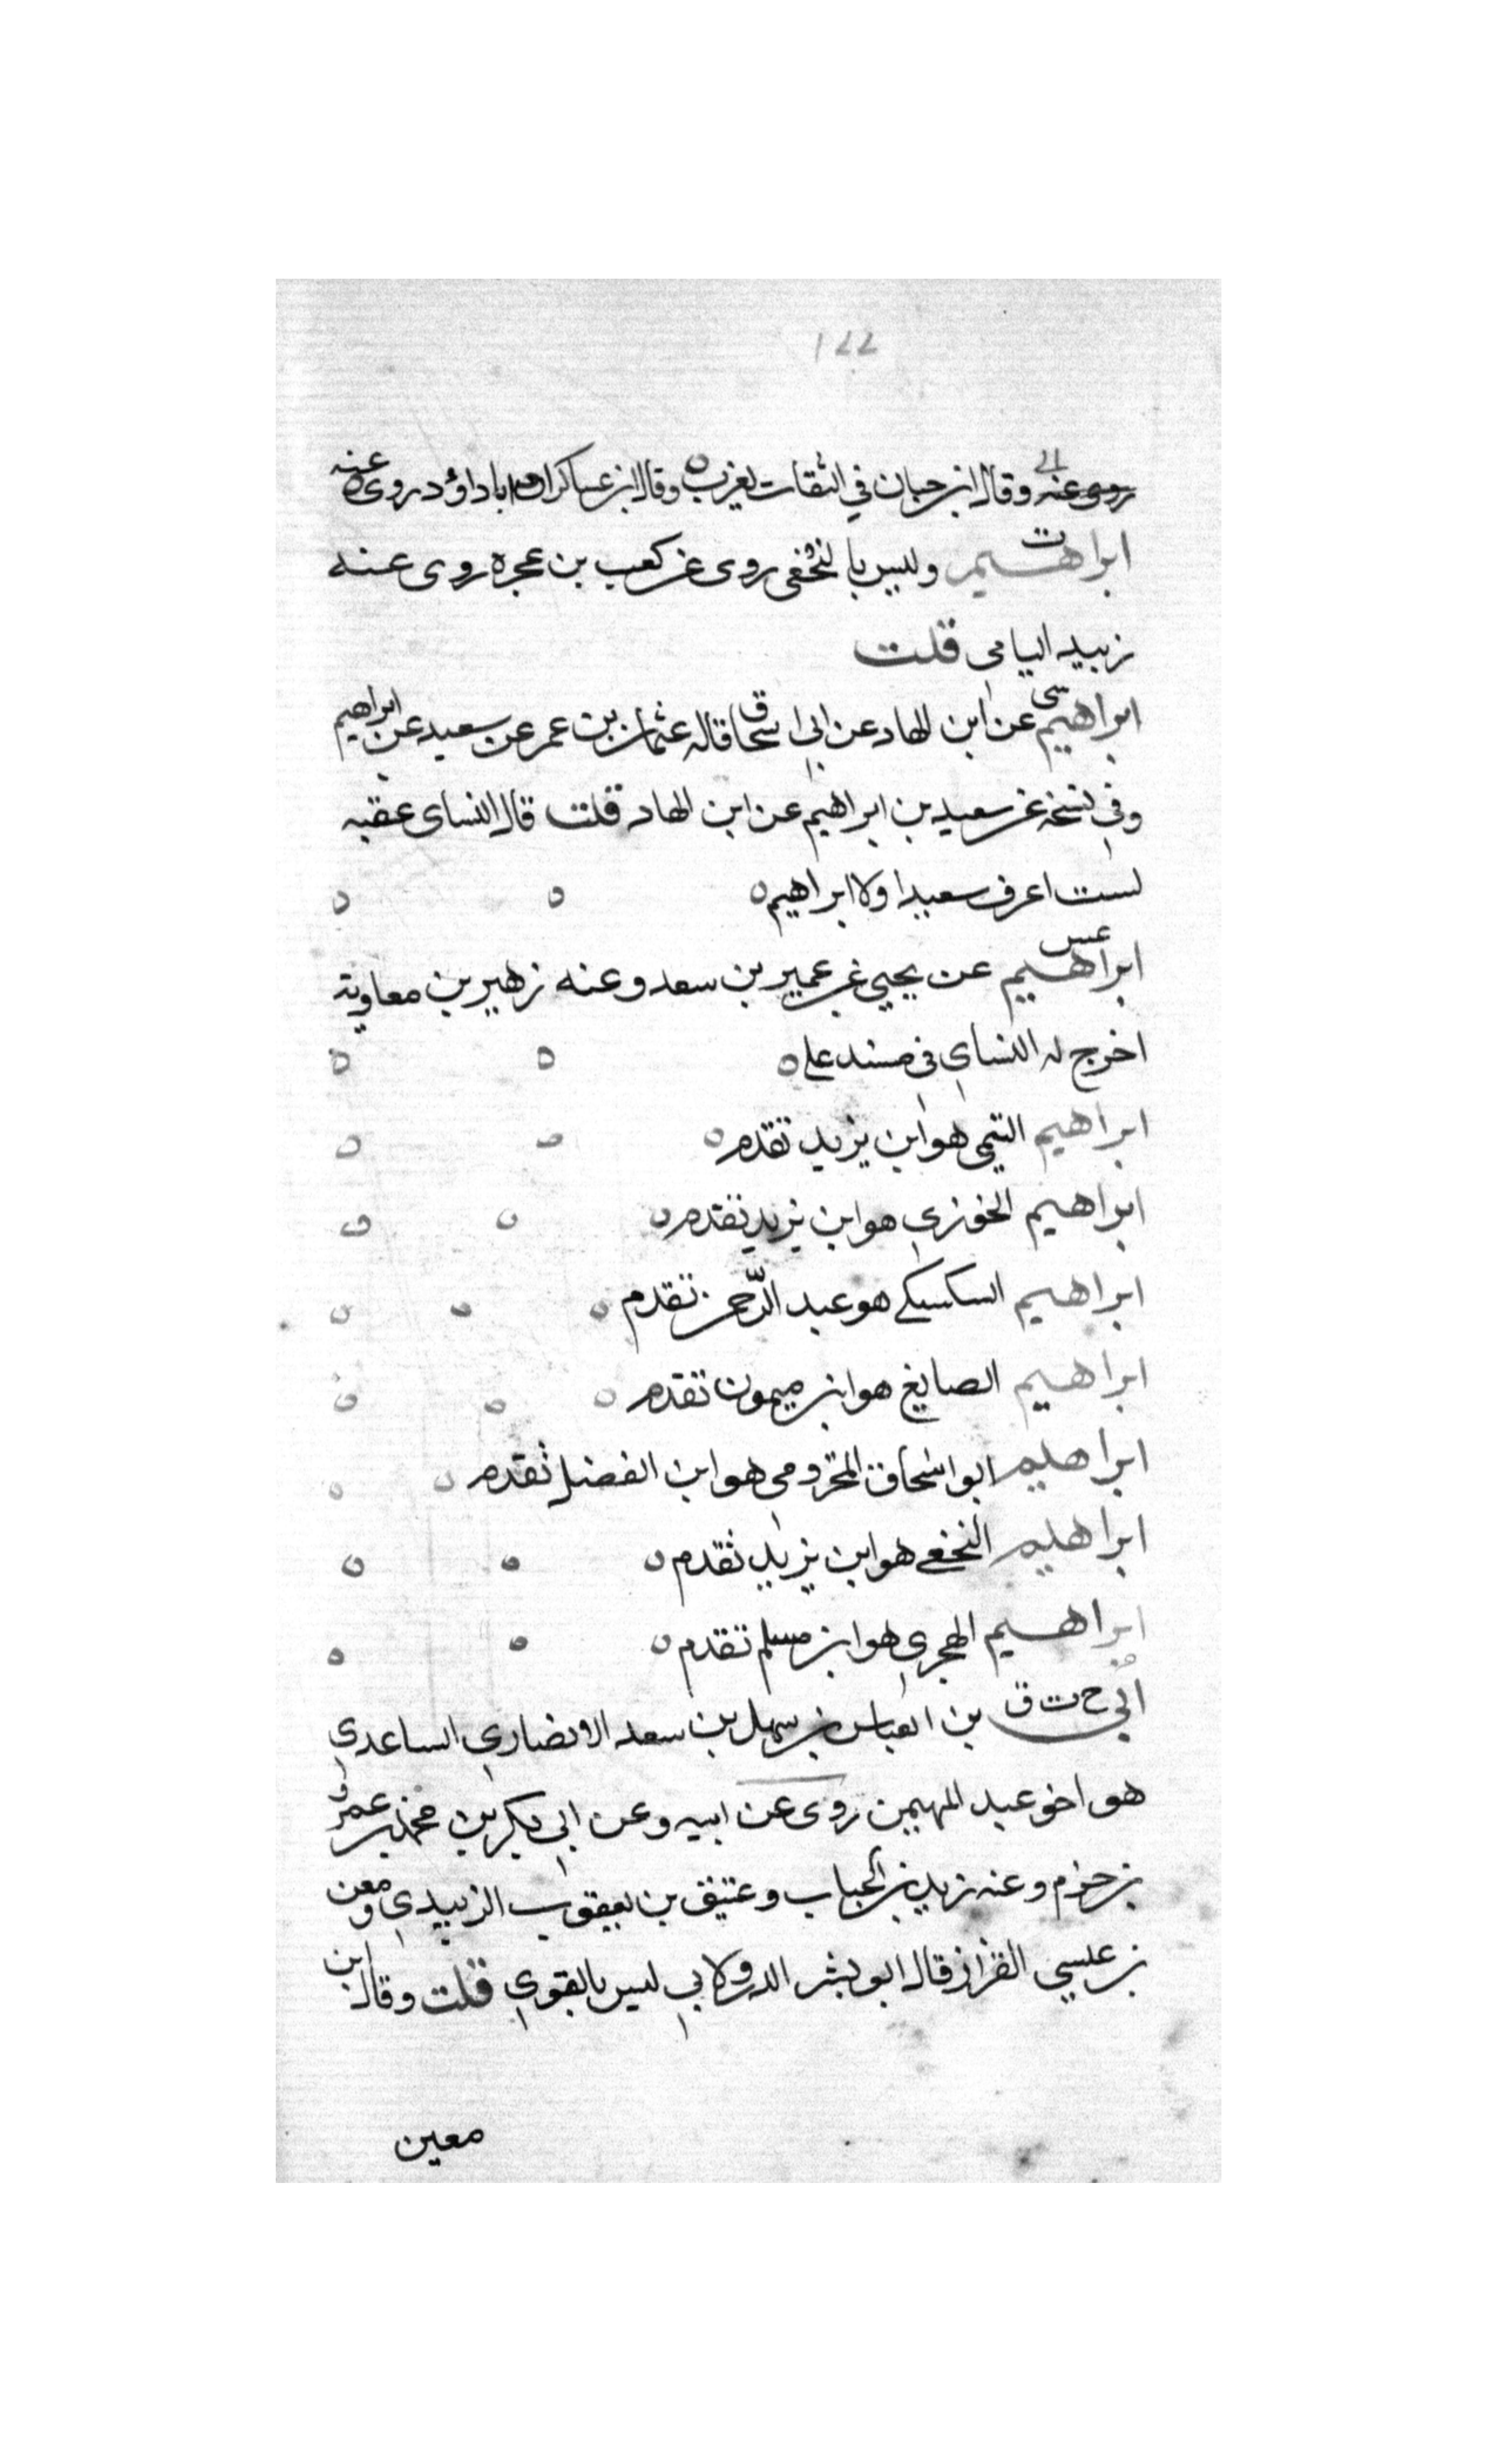 ١٢٢
روى عنه وقال ابن حبان في الثقات يغرب وقال ابن عساكر ان ابا داؤد روى عنه
ت
ابراهيم وليس بالنخعي روى عن كعب بن عجرة روى عنه
زبيد اليامي قلت
سي
ابراهيم عن ابن الهاد عن ابي اسحاق قاله عثمان بن عمر عن سعيد عن ابراهيم
وفي نسخة عن سعيد بن ابراهيم عن ابن الهاد قلت قال النساى عقبه
لست اعرف سعيدا ولا ابراهيم
عس
ابراهيم عن يحيى عن عمير بن سعد وعنه زهير بن معاوية
اخرج له النساي في مسند علي
ابراهيم التيمي هو ابن يزيد تقدم
ابراهيم الخوزي هو ابن يزيد تقدم
ابراهيم السكسكي هو عبد الرّحمن تقدم
ابراهيم الصايغ هو ابن ميمون تقدم
ابراهيم ابو اسحاق المخزومي هو ابن الفضل تقدم
ابراهيم النخعي هو ابن يزيد تقدم
ابراهيم الهجري هو ابن مسلم تقدم
خ ت ق
أبي بن العباس بن سهل بن سعد الانصاري الساعدي
هو اخو عبد المهيمن روى عن ابيه وعن ابي بكر بن محمد بن عمرو
بن حزم وعنه زيد بن الحباب وعتيق بن يعقوب الزبيدي ومعن
بن عيسي القزاز قال ابو بشر الدولابي ليس بالقوي قلت وقال ابن
معين